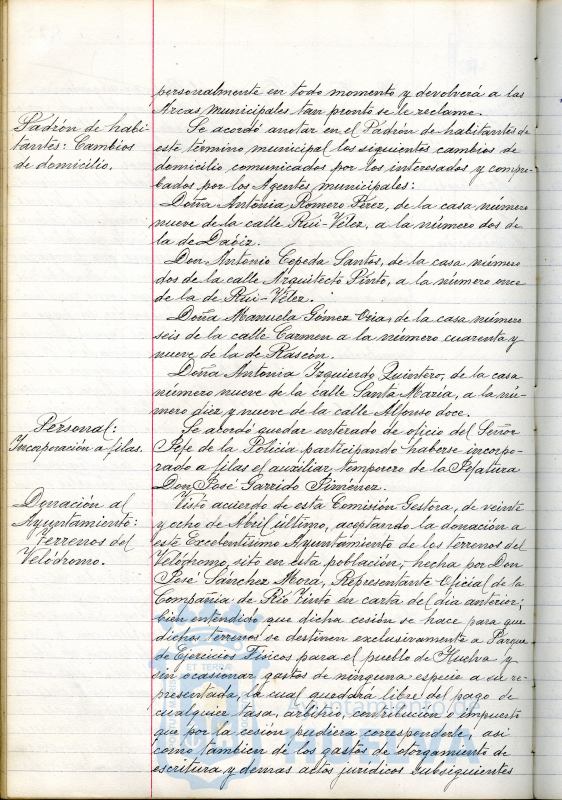 personalmente en todo momento y devolverá a las
Arcas municipales tan pronto se le reclame.
Padrón de habi-
tantes: Cambios
de domicilio.
Se acordó anotar en el Padrón de habitantes de
este término municipal los siguientes cambios de
domicilio comunicados por los interesados y compro-
bados por los Agentes municipales:
Doña Antonia Romero Pérez, de la casa número
nueve de la calle Rui-Vélez, a la número dos de
la de Daóiz.
Don Antonio Cepeda Santos, de la casa número
dos de la calle Arquitecto Pinto, a la número once
de la de Rui-Vélez.
Doña Manuela Gómez Oria, de la casa número
seis de la calle Carmen a la número cuarenta y
nueve de la de Rascón.
Doña Antonia Izquierdo Quintero, de la casa
número nueve de la calle Santa María, a la nú-
mero diez y nueve de la calle Alfonso doce.
Personal:
Incorporación a filas.
Se acordó quedar enterado de oficio del Señor
Jefe de la Policía participando haberse incorpo-
rado a filas el auxiliar temporero de la Jefatura
Don José Garrido Jiménez.
Donación al
Ayuntamiento:
Terrenos del
Velódromo.
Visto acuerdo de esta Comisión Gestora, de veinte
y ocho de Abril último, aceptando la donación a
este Excelentísimo Ayuntamiento de los terrenos del
Velódromo, sito en esta población, hecha por Don
José Sánchez Mora, Representante Oficial de la
Compañía de Río Tinto en carta del día anterior;
bien entendido que dicha cesión se hace para que
dichos terrenos se destinen exclusivamente a Parque
de Ejercicios Físicos para el pueblo de Huelva y
sin ocasionar gastos de ninguna especie a su re-
presentada, la cual quedará libre del pago de
cualquier tasa, arbitrio, contribución o impuesto
que por la cesión pudiera corresponderle, así
como también de los gastos de otorgamiento de
escritura y demas actos jurídicos subsiguientes
ET TERRAE
Ayuntamiento de
HUELVA